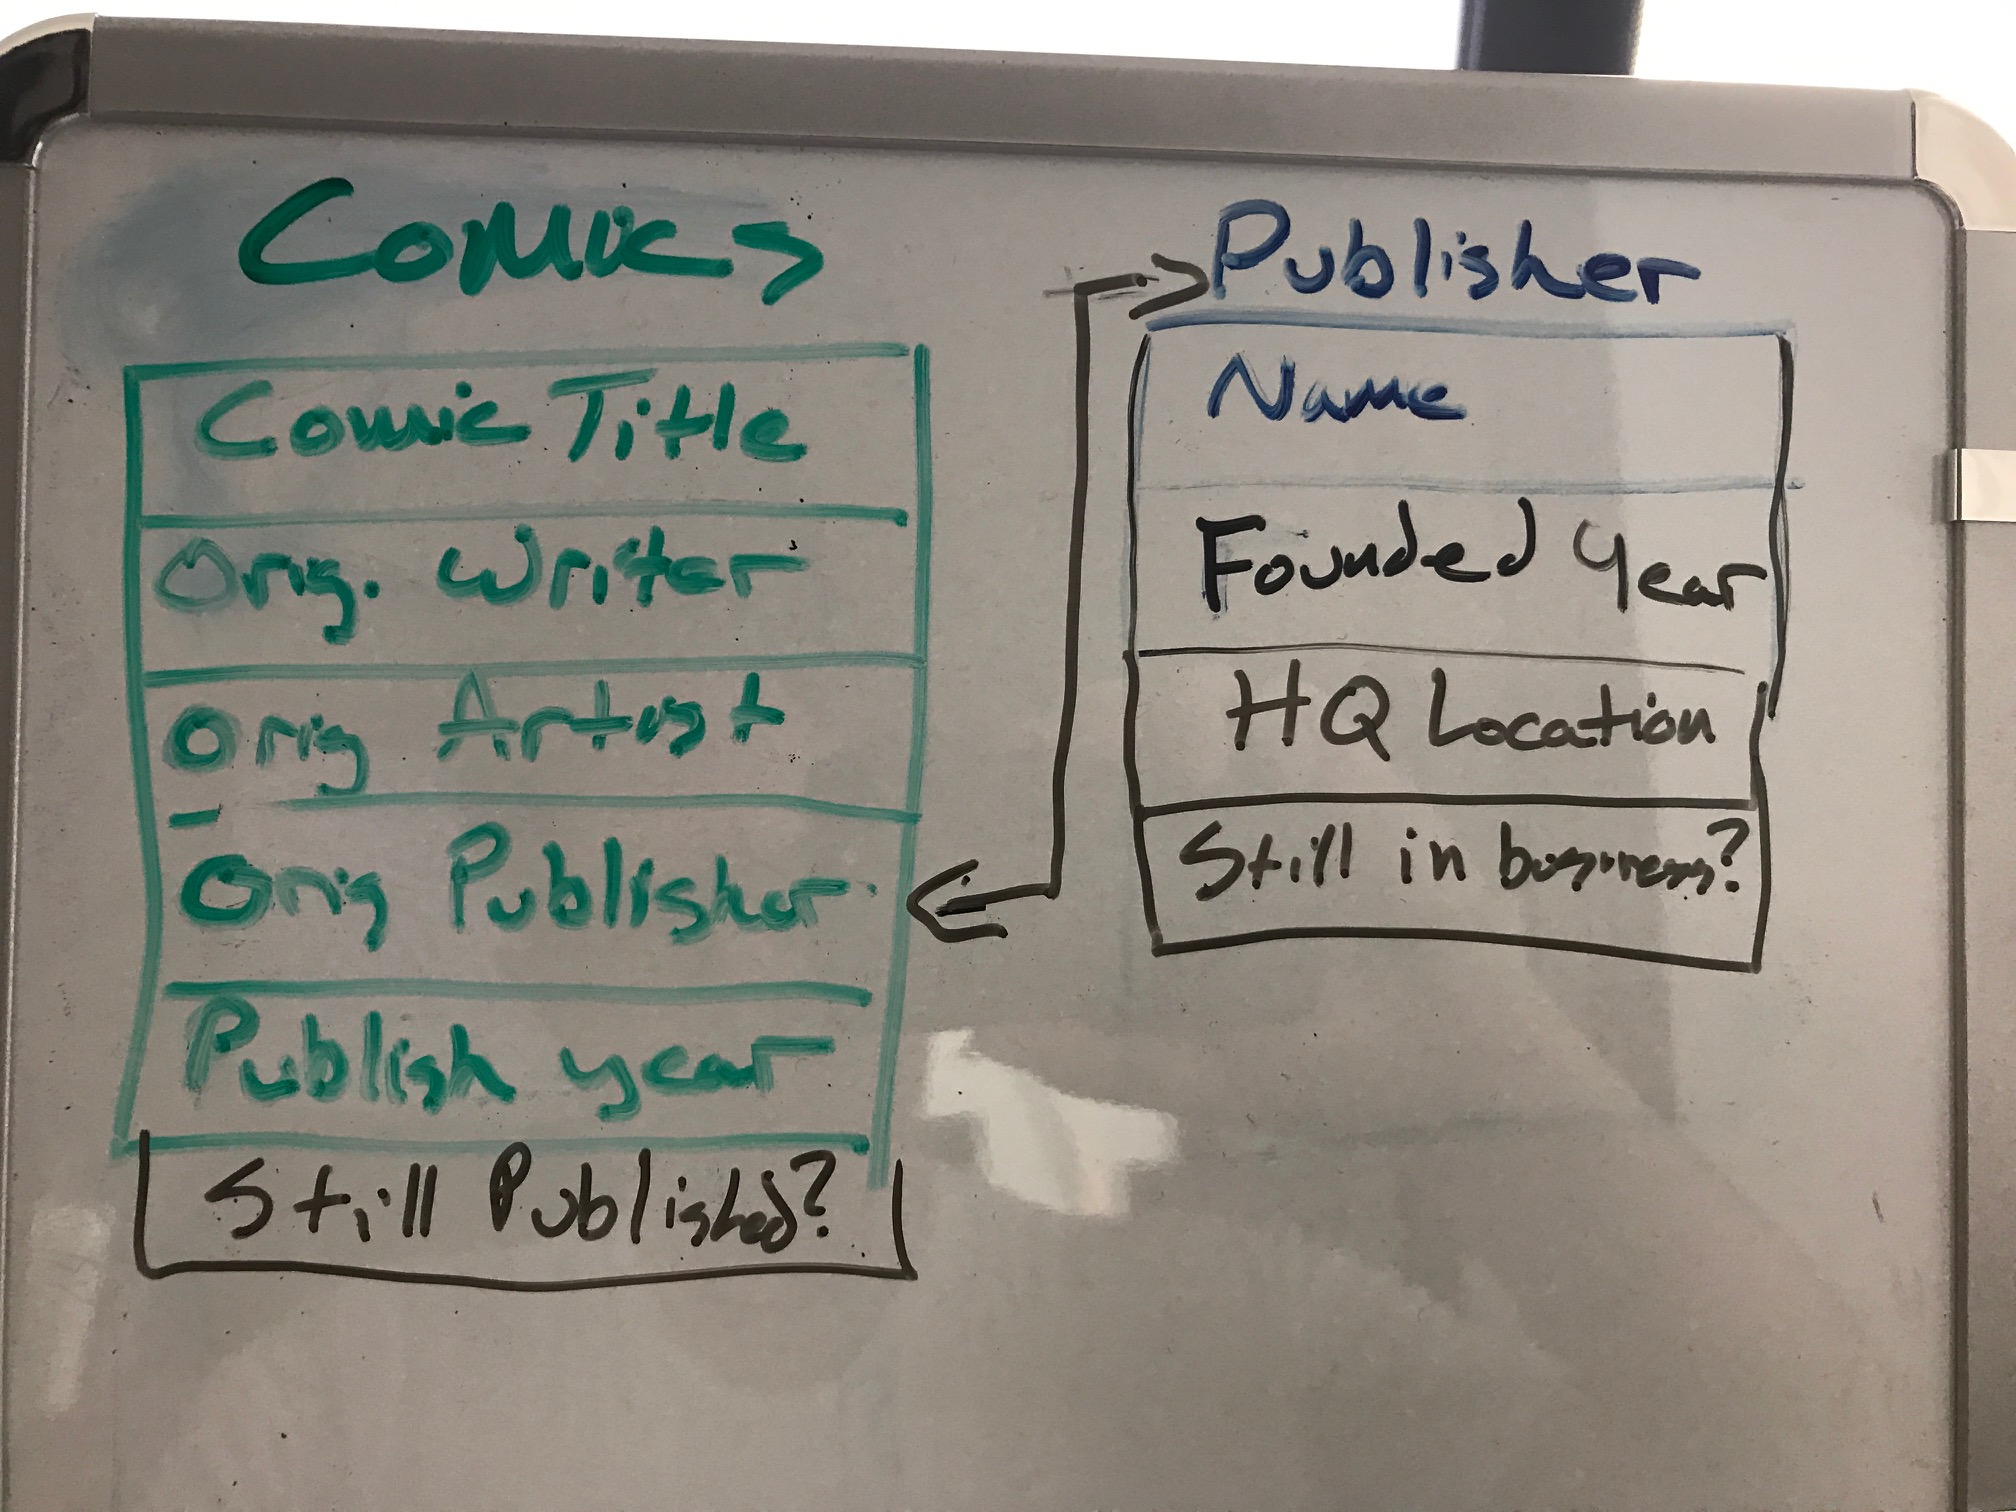 Comics
Comic Title
Orig. Writer
Orig Artist
Orig Publisher
Publish year
Still Published?
Publisher
Name
Founded Year
HQ Location
Still in business?